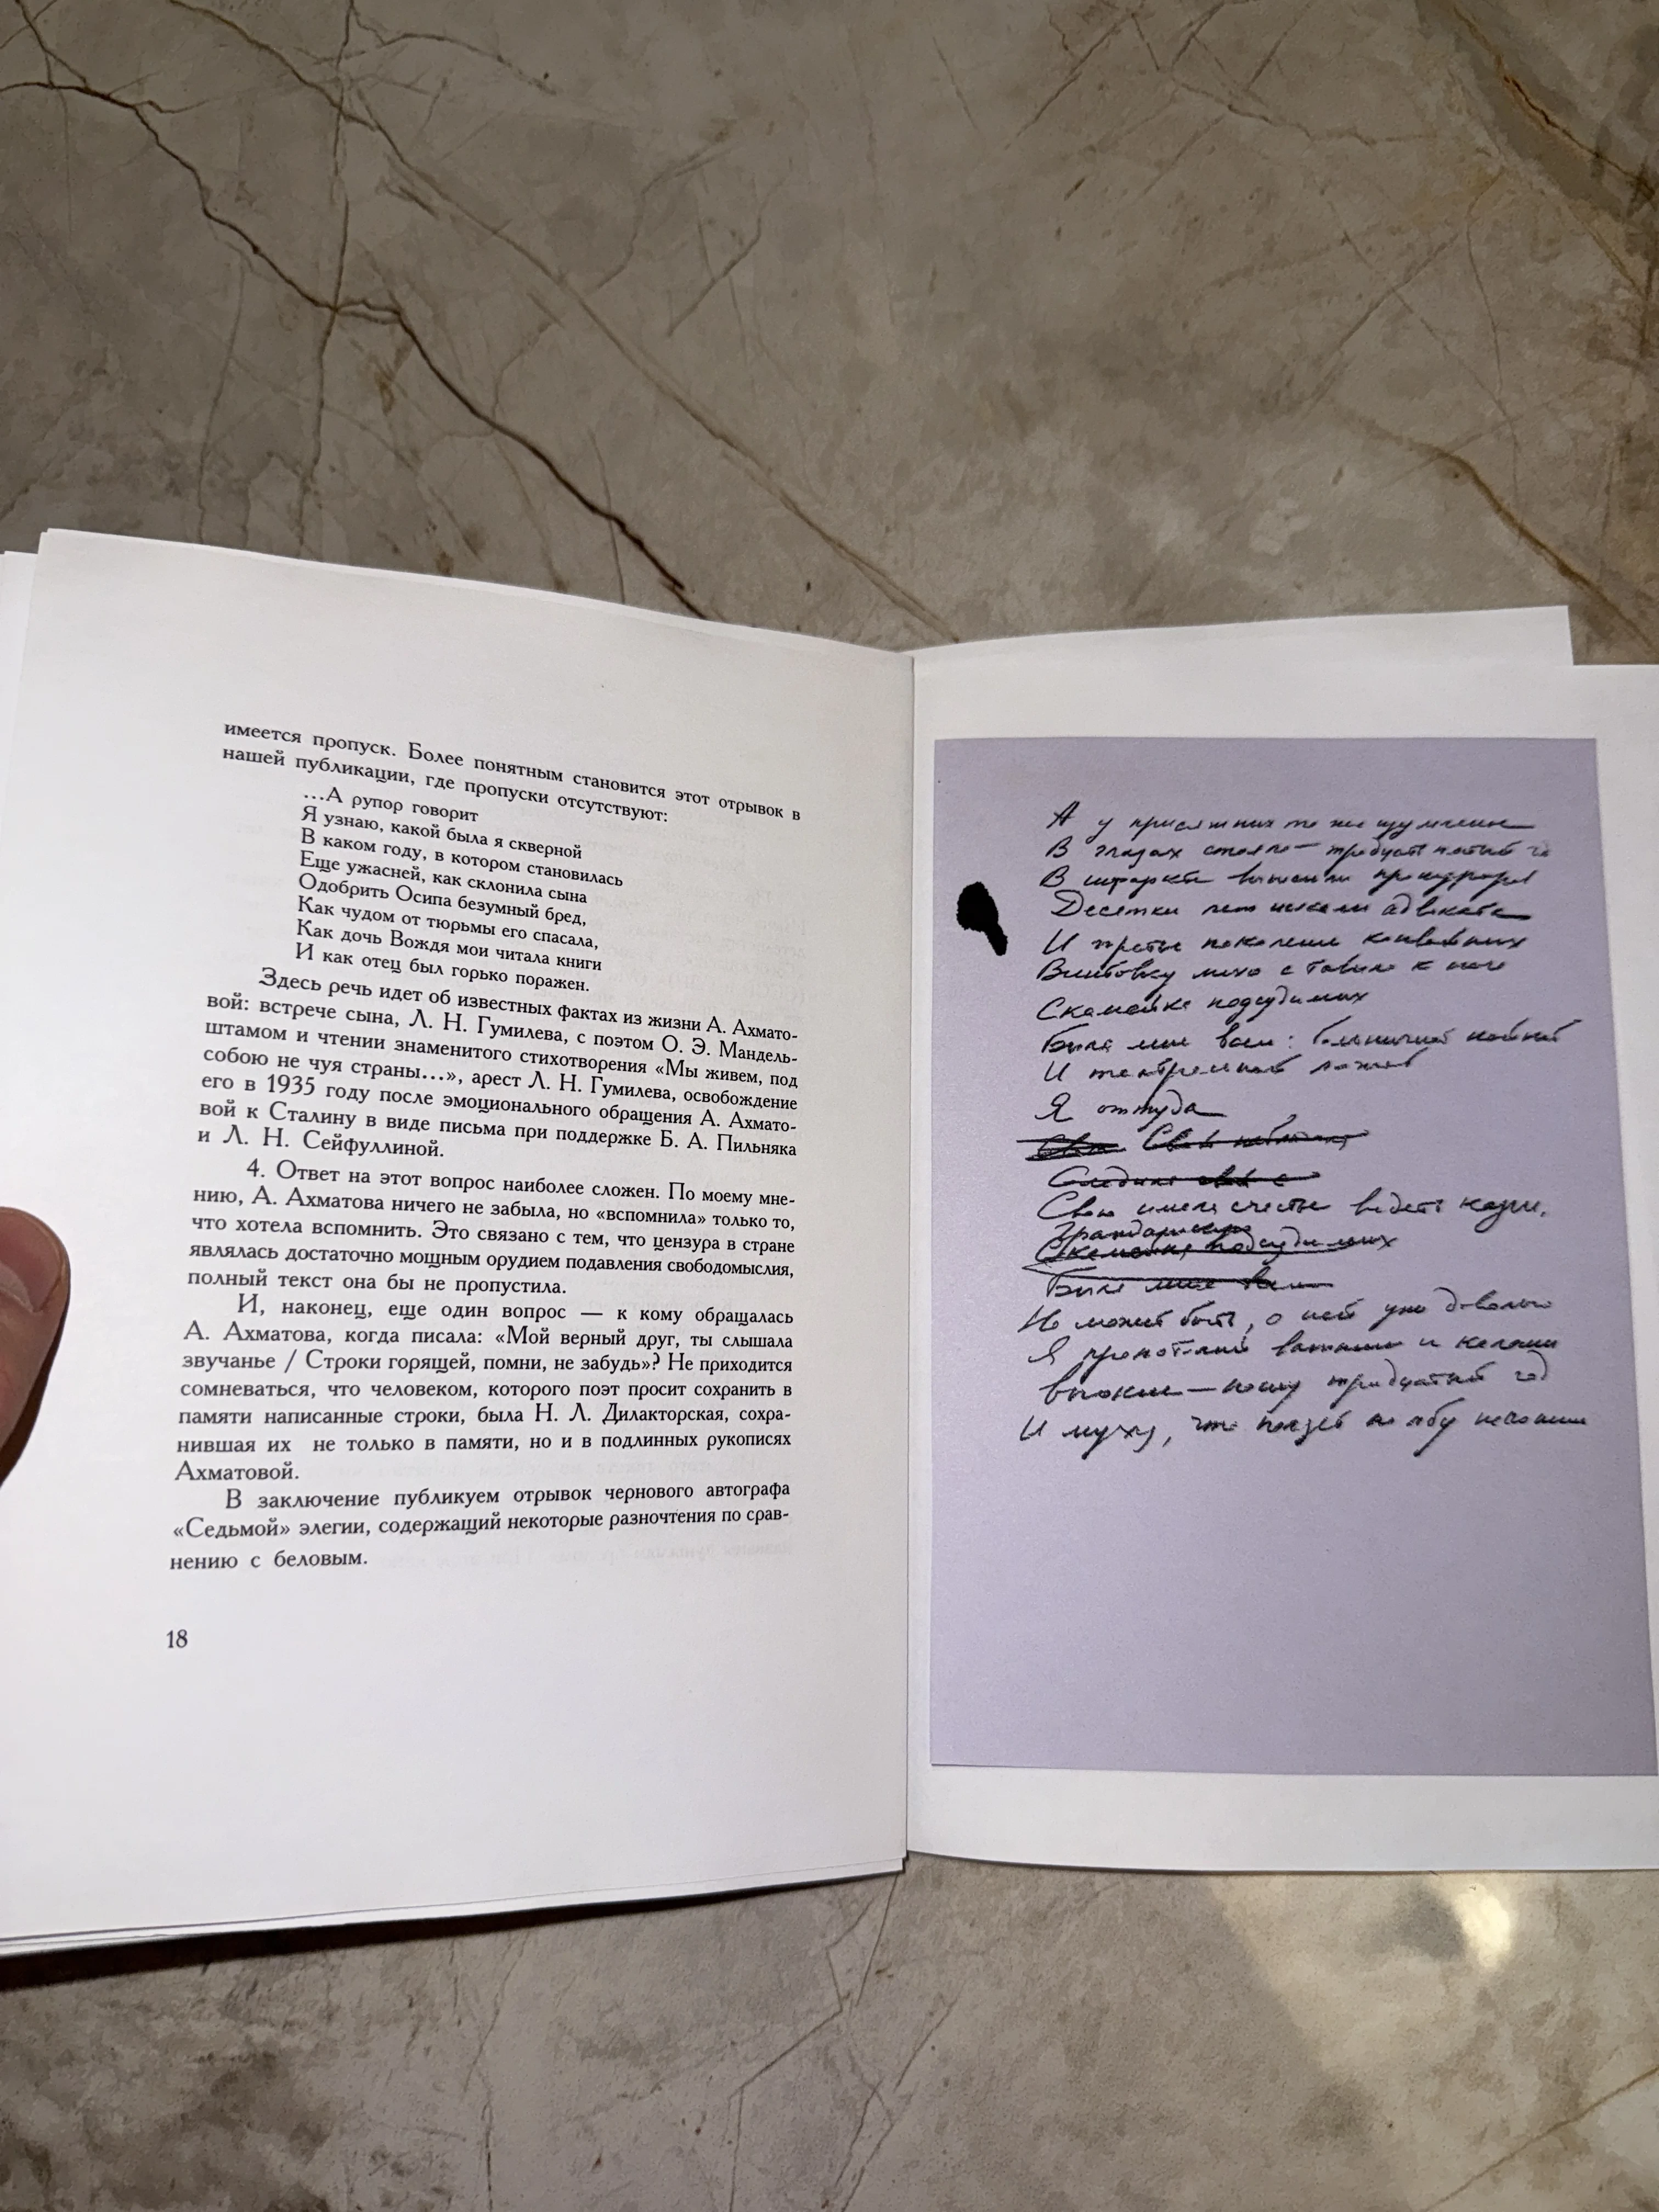 имеется пропуск. Более понятным становится этот отрывок в
нашей публикации, где пропуски отсутствуют:
...А рупор говорит
Я узнаю, какой была я скверной
В каком году, в котором становилась
Еще ужасней, как склонила сына
Одобрить Осипа безумный бред,
Как чудом от тюрьмы его спасала,
Как дочь Вождя мои читала книги
И как отец был горько поражен.
Здесь речь идет об известных фактах из жизни А. Ахмато-
вой: встрече сына, Л. Н. Гумилева, с поэтом О. Э. Мандель-
штамом и чтении знаменитого стихотворения «Мы живем, под
собою не чуя страны...», арест Л. Н. Гумилева, освобождение
его в 1935 году после эмоционального обращения А. Ахмато-
вой к Сталину в виде письма при поддержке Б. А. Пильняка
и Л. Н. Сейфуллиной.
4. Ответ на этот вопрос наиболее сложен. По моему мне-
нию, А. Ахматова ничего не забыла, но «вспомнила» только то,
что хотела вспомнить. Это связано с тем, что цензура в стране
являлась достаточно мощным орудием подавления свободомыслия,
полный текст она бы не пропустила.
И, наконец, еще один вопрос — к кому обращалась
А. Ахматова, когда писала: «Мой верный друг, ты слышала
звучанье / Строки горящей, помни, не забудь»? Не приходится
сомневаться, что человеком, которого поэт просит сохранить в
памяти написанные строки, была Н. Л. Дилакторская, сохра-
нившая их не только в памяти, но и в подлинных рукописях
Ахматовой.
В заключение публикуем отрывок чернового автографа
«Седьмой» элегии, содержащий некоторые разночтения по срав-
нению с беловым.
18
А у присяжных то же изумленье
В глазах стояло — тридцать пятый
В выносили прокурора
Десятки лет искали адвоката
И третье поколение конвойных
Винтовку лихо ставило к ноге
Скамейка подсудимых
Была мне всем: больничной койкой
И театральной ложей
Я оттуда
Свою имела счастье видеть казнь.
Скамейка подсудимых
Была мне всем
Не может быть, о ней уже довольно
Я
И муха, что ползет по лбу